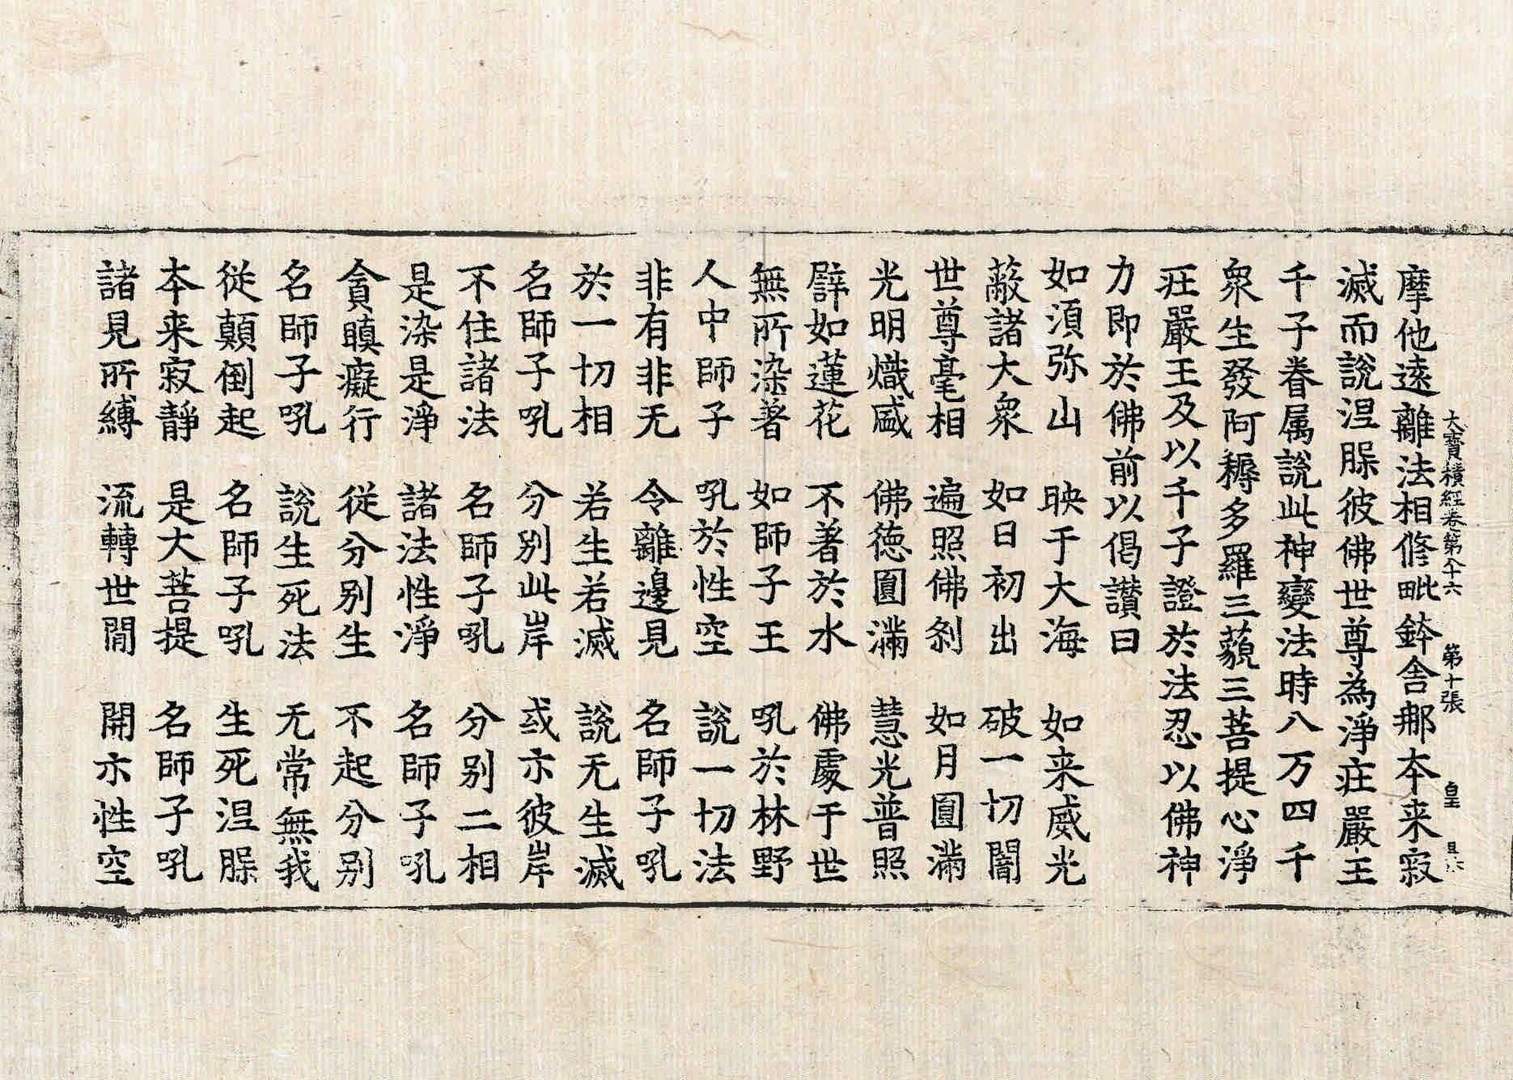 大寶積經卷第八十六 第十張 皇
摩他遠離法相修毗鉢舍那本来寂
滅而說涅槃彼佛世尊為淨莊嚴王
千子眷属說此神變法時八万四千
衆生發阿耨多羅三藐三菩提心淨
莊嚴王及以千子證於法忍以佛神
力即於佛前以偈讃曰
如湏弥山 映于大海 如来威光
蔽諸大衆 如日初出 破一切闇
世尊毫相 遍照佛刹 如月圓滿
光明熾盛 佛德圓滿 慧光普照
譬如蓮花 不著於水 佛處于世
無所染著 如師子王 吼於林野
人中師子 吼於性空 說一切法
非有非无 令離邊見 名師子吼
於一切相 若生若滅 說无生滅
名師子吼 分别此岸 或示彼岸
不住諸法 名師子吼 分别二相
是染是淨 諸法性淨 名師子吼
貪瞋癡行 従分别生 不起分别
名師子吼 說生死法 无常無我
従顛倒起 名師子吼 生死涅槃
本来寂靜 是大菩提 名師子吼
諸見所縛 流轉世閒 開示性空